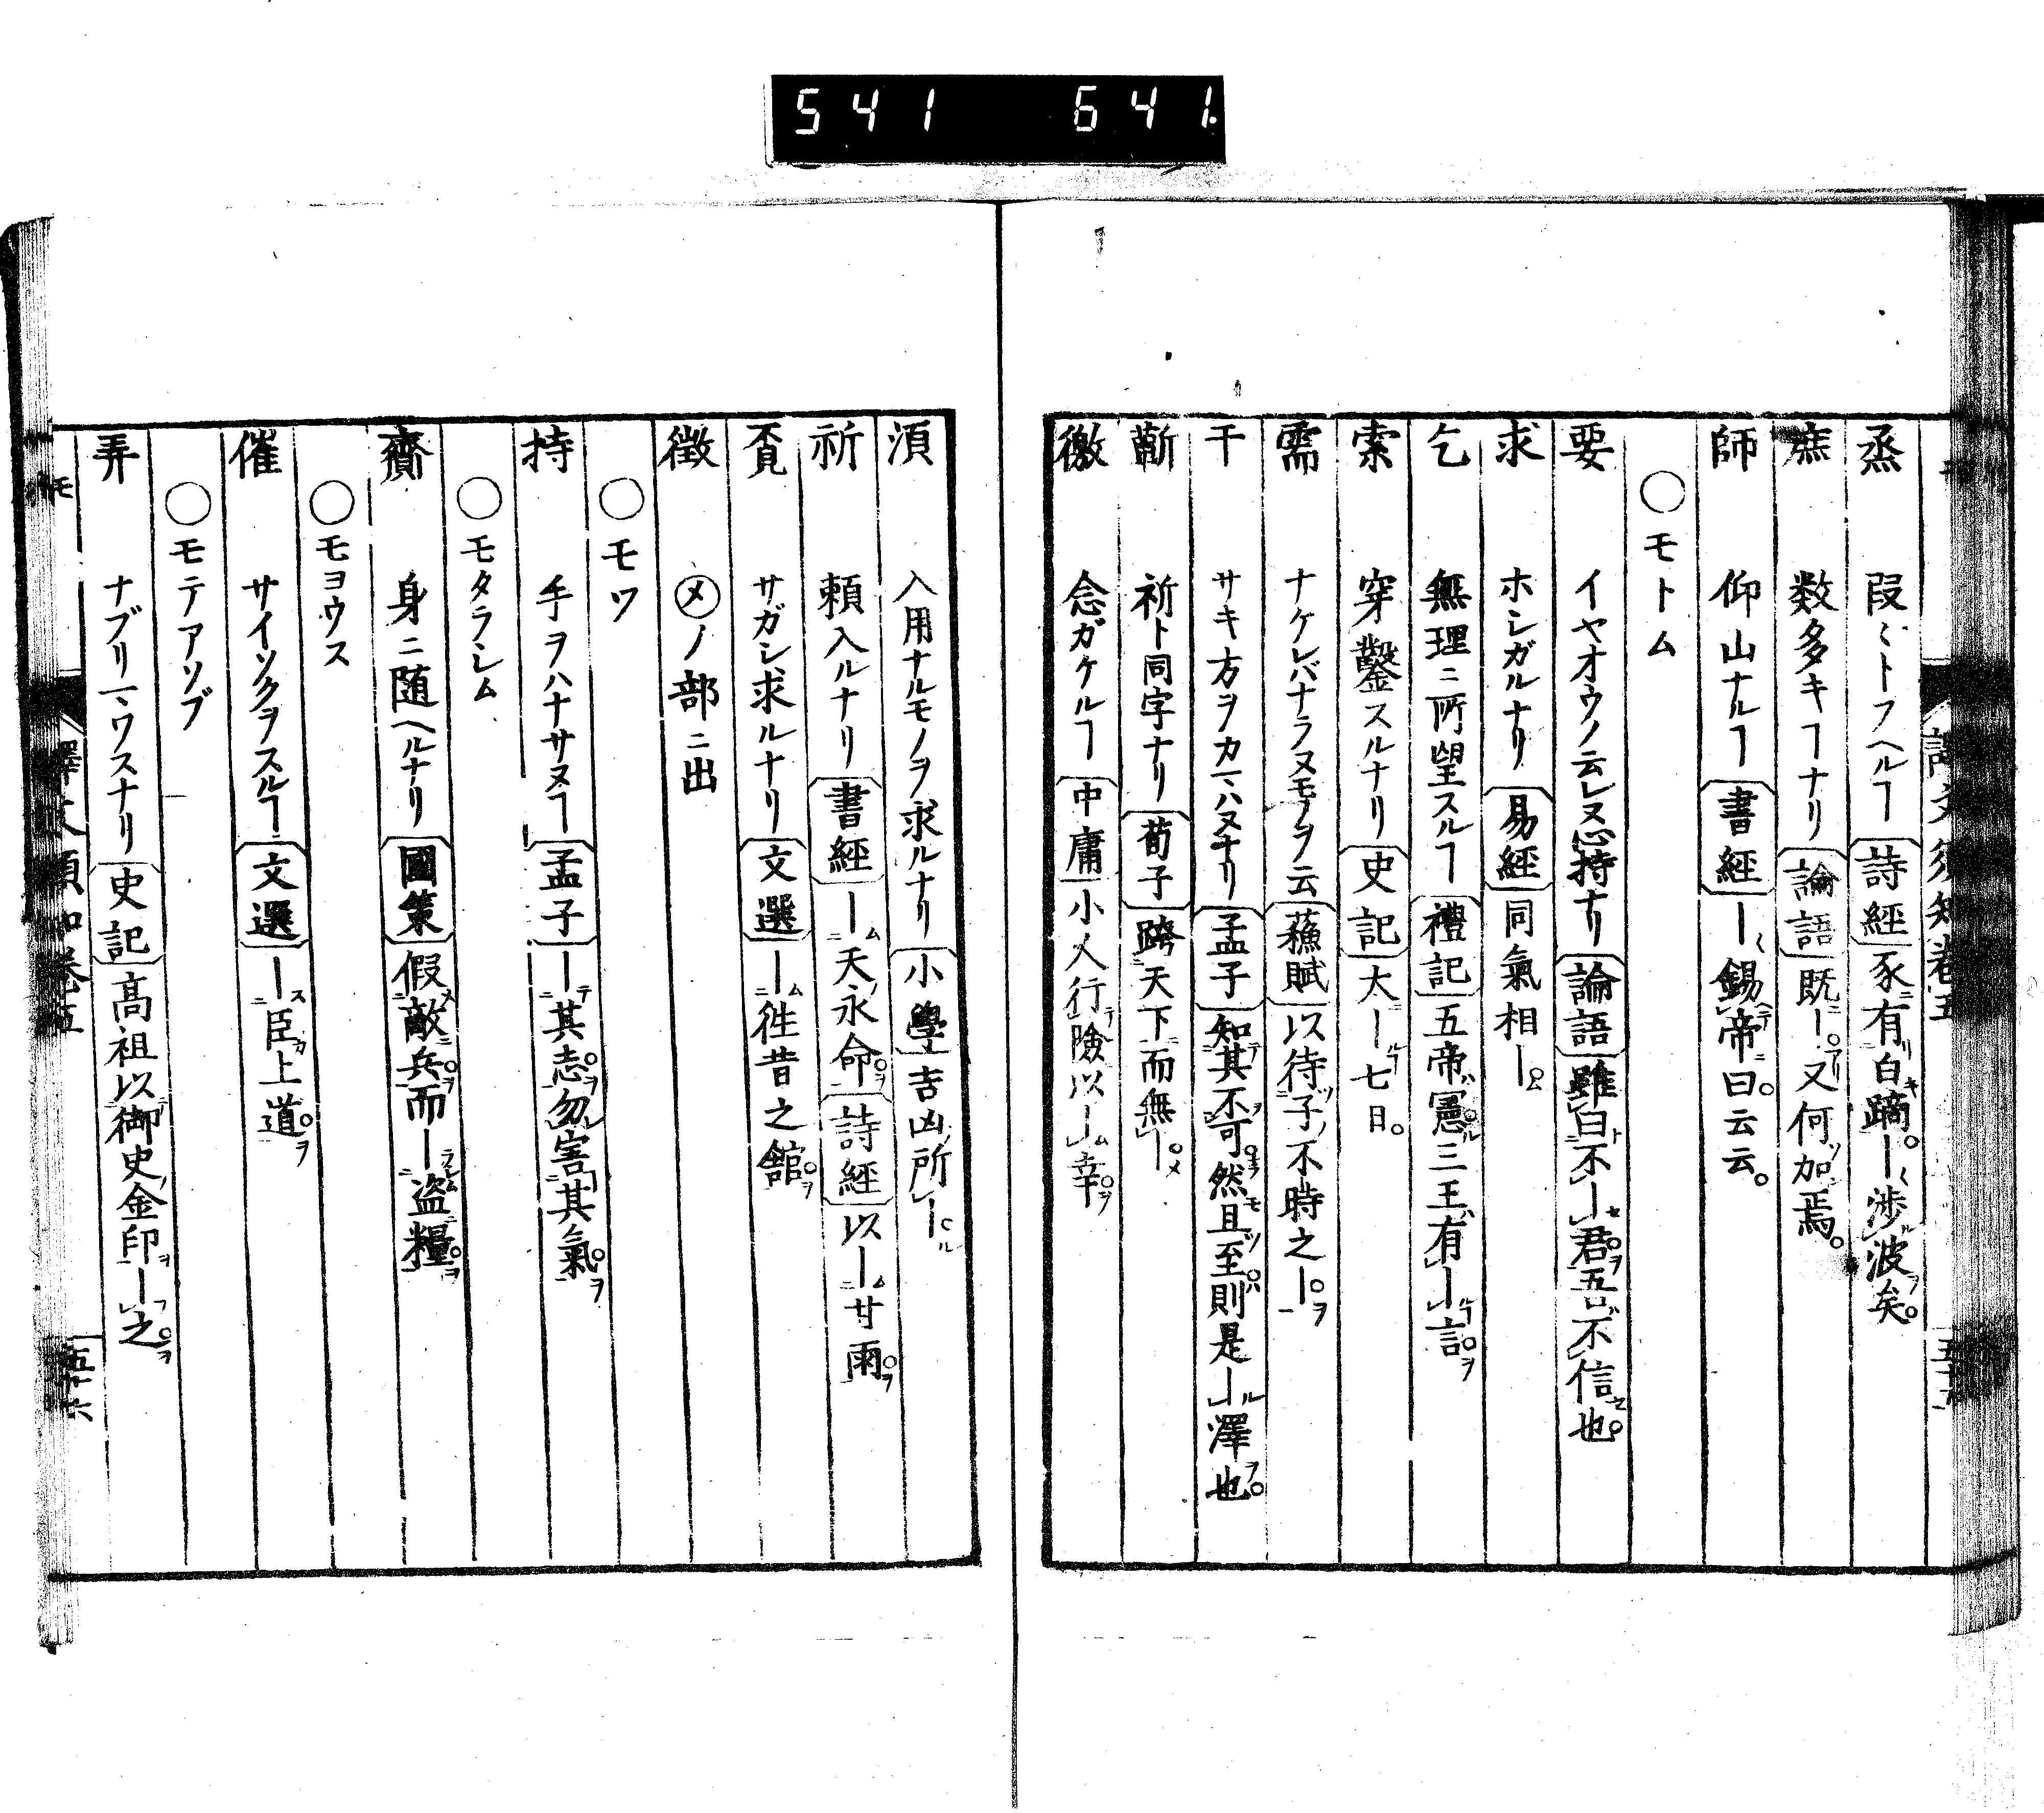 541 641
烝 段々トフヘルヿ 詩經 豕有白蹢ー渉波矣
庶 数多キヿナリ 論語 既ー又何加焉
師 仰山ナルヿ 書經 ー錫帝曰云云
○モトム
要 イヤオウノ云レヌ心持ナリ 論語 雖曰不ー君吾不信也
求 ホシガルナリ 易經 同氣相ー
乞 無理ニ所望スルヿ 禮記 五帝憲三王有ー言
索 穿鑿スルナリ 史記 大ー七日
需 ナケレバナラヌモノヲ云 蘓賦 以待子不時之ー
干 サキ方ヲカマハヌナリ 孟子 知其不可然且至則是ー澤也
蘄 祈ト同字ナリ 荀子 跨天下而無ー
徼 念ガケルヿ 中庸 小人行險以ー幸
須 入用ナルモノヲ求ルナリ 小學 吉凶所ー
祈 頼入ルナリ 書經 ー天永命 詩經 以ー甘雨
覔 サガシ求ルナリ 文選 ー徃昔之舘
徵 メノ部ニ出
○モツ
持 手ヲハナサヌヿ 孟子 ー其志勿害其氣
○モタラシム
齎 身ニ随ヘルナリ 國策 假敵兵而ー盗糧
○モヨウス
催 サイソクヲスルヿ 文選 ー臣上道
○モテアソブ
弄 ナブリマワスナリ 史記 髙祖以御史金印ー之
モ 譯文須知卷五 五十六